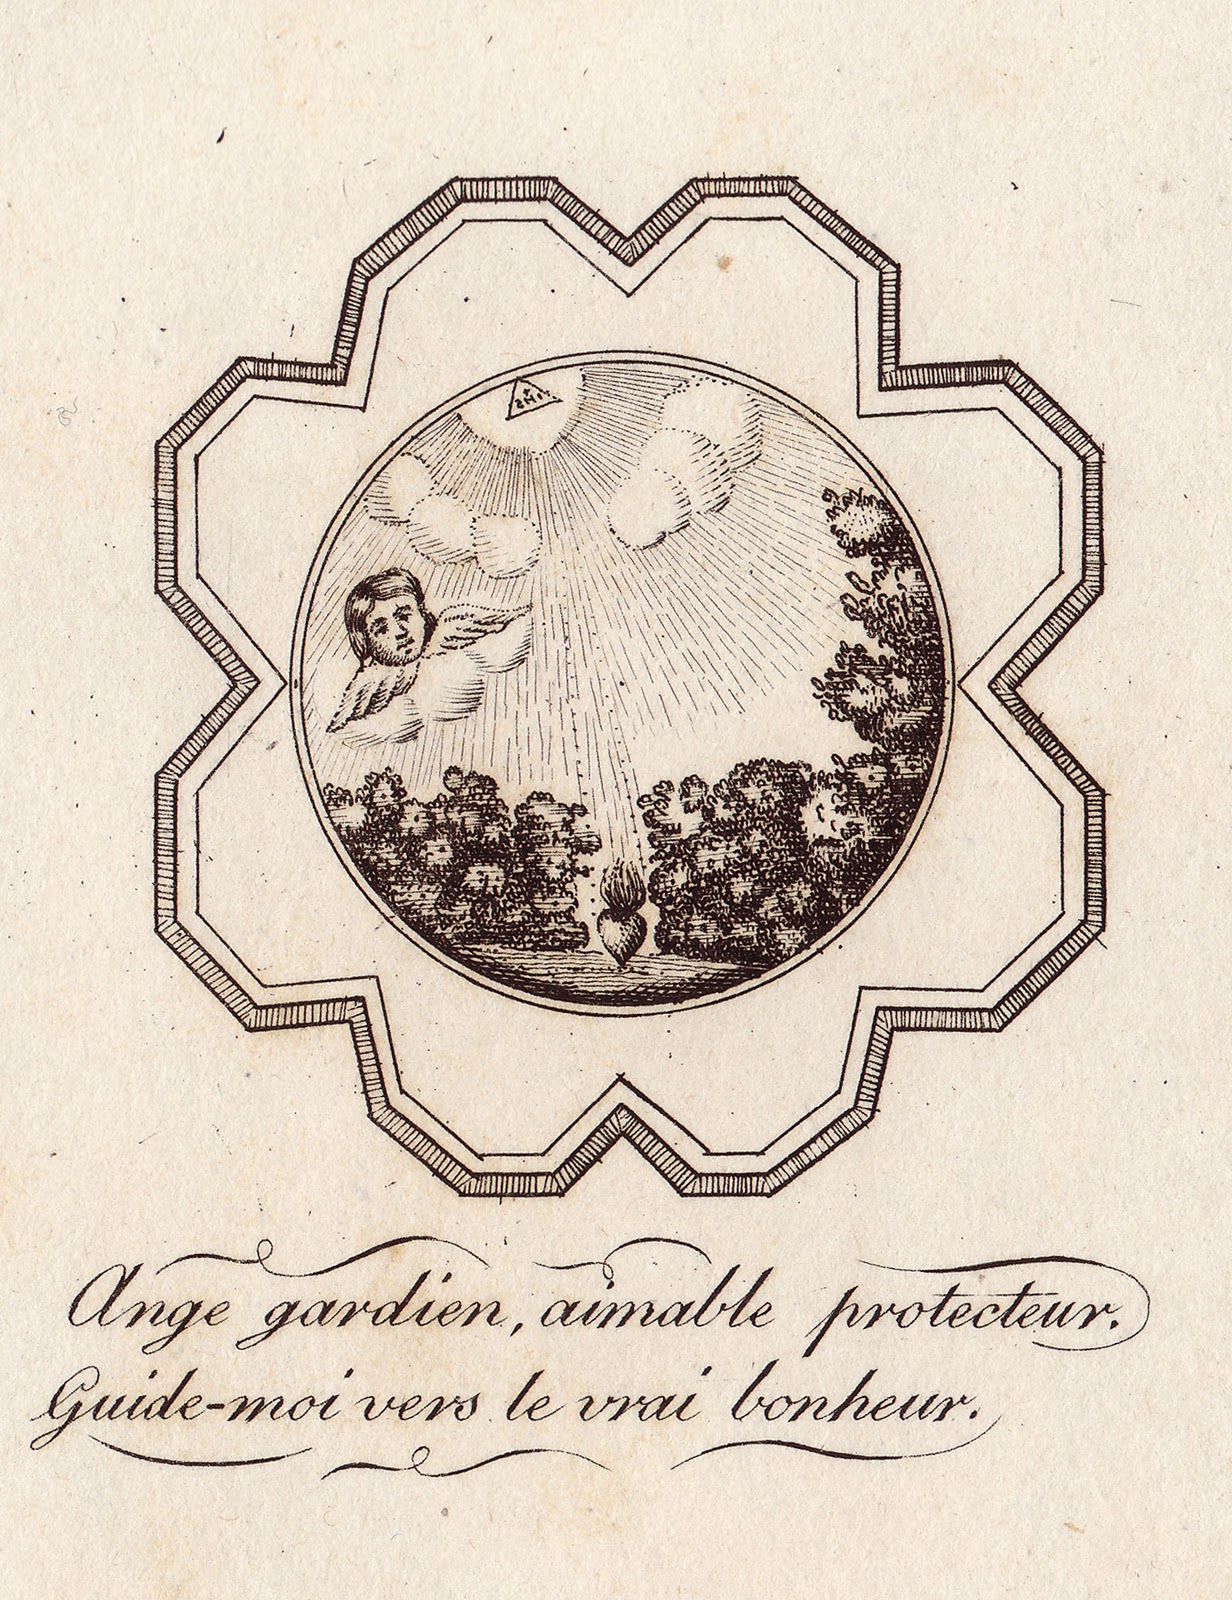 Ange gardien, aimable protecteur.
Guide-moi vers le vrai bonheur.